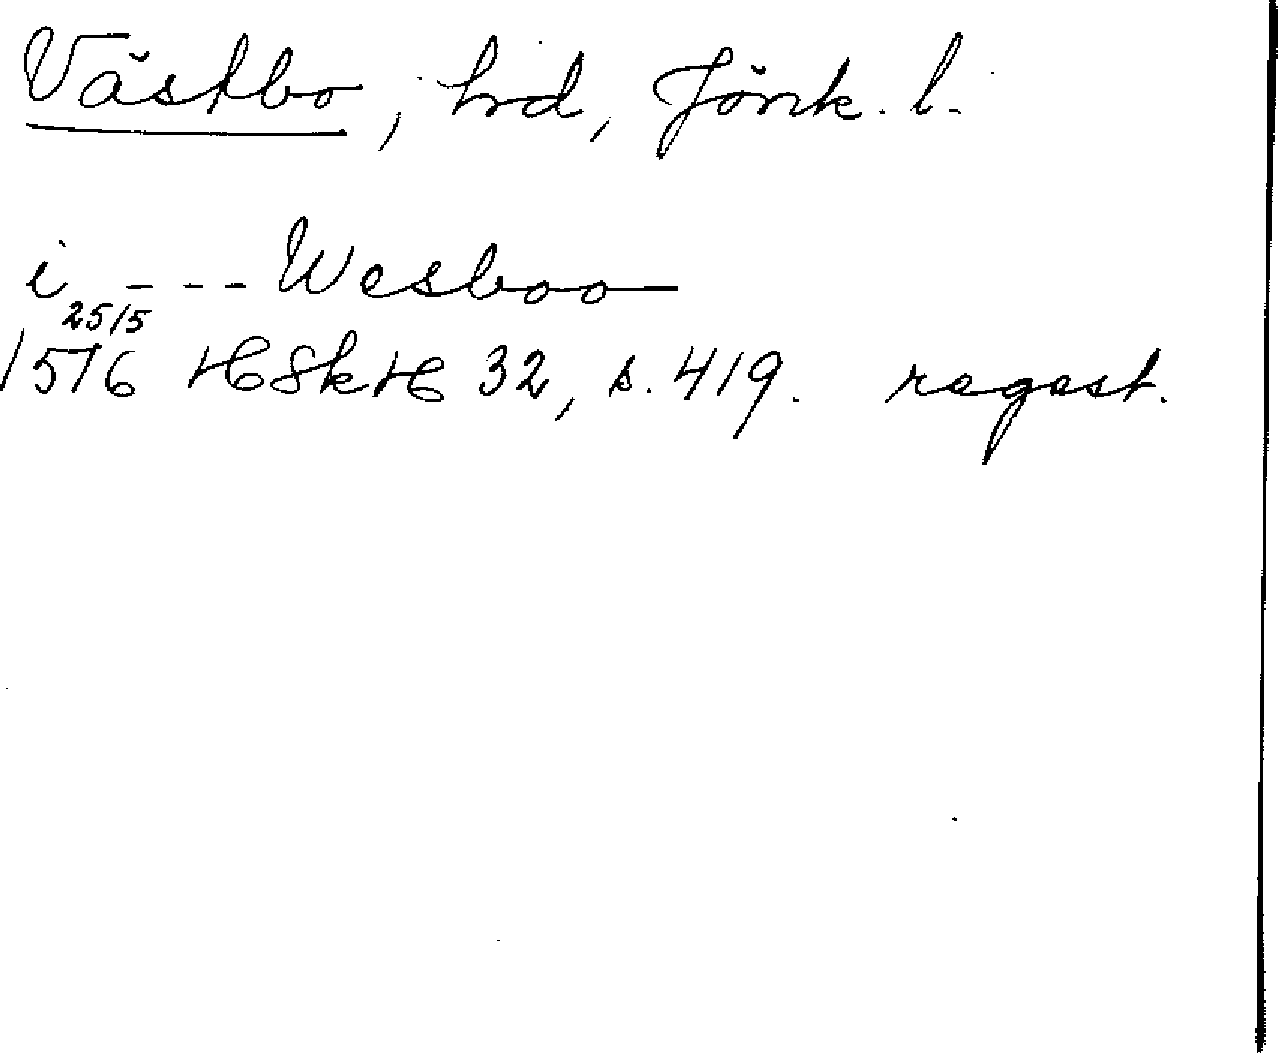 Västbo, hrd, Jönk. l.
i - - - Wesboo
25/5
1516 HSkH 32, s. 419. regest.